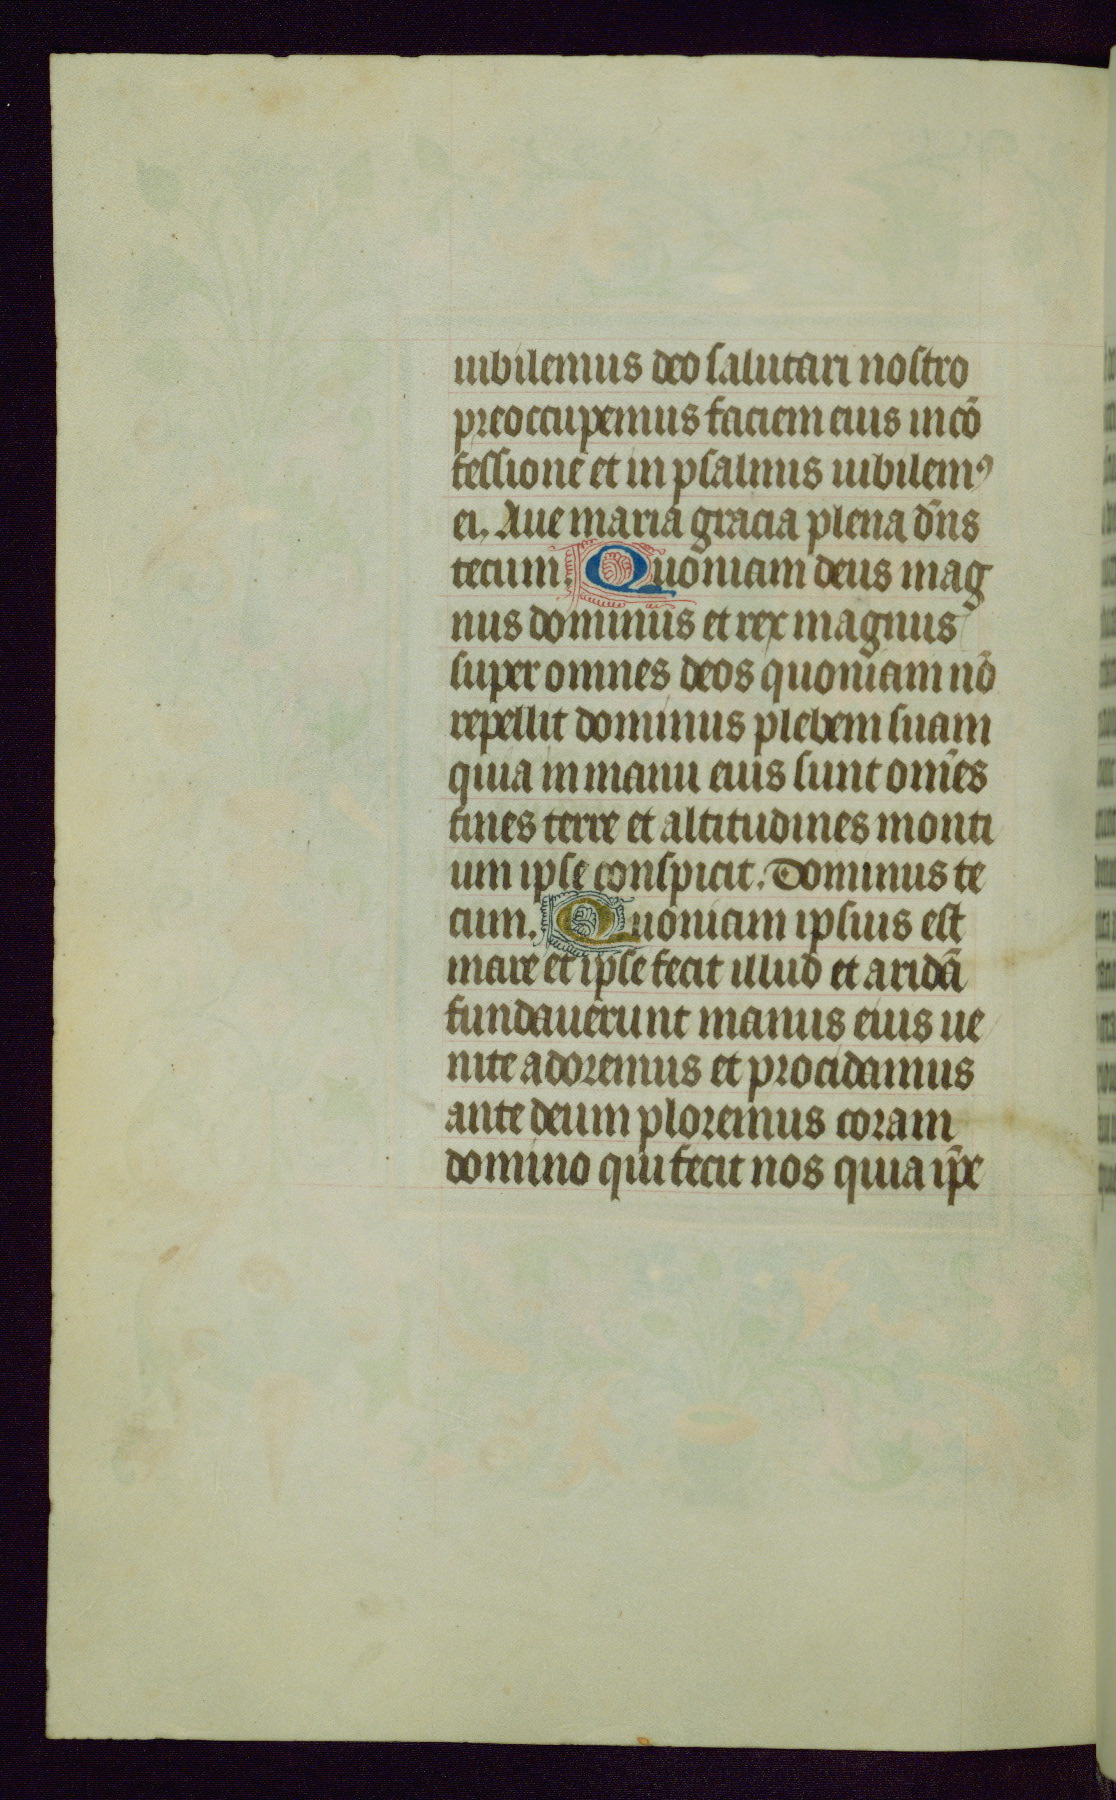 iubilemus deo salutari nostro
preoccupemus faciem eius in cō
fessione et in psalmis iubilemꝰ
ei. Aue maria gracia plena dn̄s
tecum. Quoniam deus mag
nus dominus et rex magnus
super omnes deos quoniam nō
repellit dominus plebem suam
quia in manu eius sunt om̄es
fines terre et altitudines monti
um ipse conspicit. Dominus te
cum. Quoniam ipsius est
mare et ipse fecit illud et aridā
fundauerunt manus eius ue
nite adoremus et procidamus
ante deum ploremus coram
domino qui fecit nos quia ip̄e